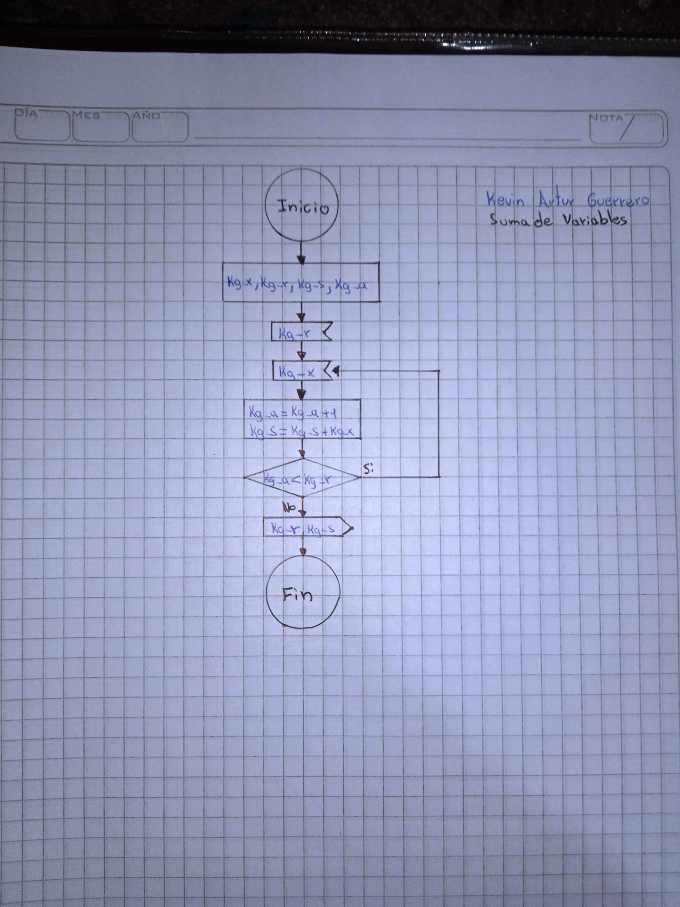 DÍA MES AÑO NOTA
Inicio
Kevin Artur Guerrero
Suma de Variables
Kg-x, Kg-r, Kg-s, Kg-a
Kg-r
Kg-x
Kg-a=Kg-a+1
Kg-s=Kg-s+Kgx
Si
Kg-a<Kg-r
No
Kg-r, Kg-s
Fin